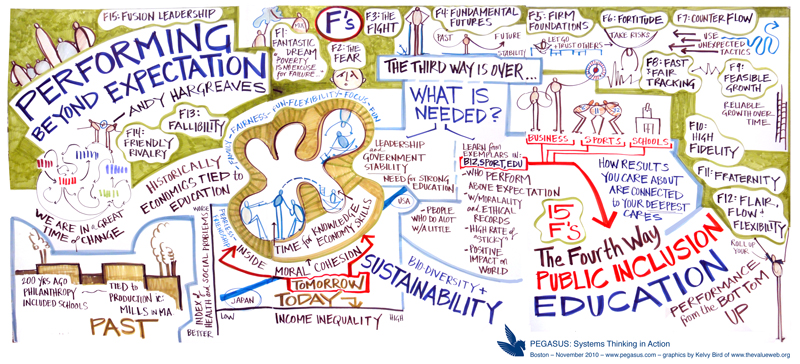 F15: FUSION LEADERSHIP
PERFORMING
BEYOND EXPECTATION
ANDY HARGREAVES
F'S
F1:
FANTASTIC
DREAM
POVERTY IS NO EXCUSE
for FAILURE...
F2: THE
FEAR
F3: THE
FIGHT
F4: FUNDAMENTAL
FUTURES
PAST
FUTURE
STABILITY
F5: FIRM
FOUNDATIONS
LET GO
+ TRUST OTHERS
F6: FORTITUDE
TAKE RISKS
F7: COUNTER FLOW
USE
UNEXPECTED
TACTICS
F8: FAST
+ FAIR
TRACKING
F9:
FEASIBLE
GROWTH
RELIABLE
GROWTH OVER
TIME
F10:
HIGH
FIDELITY
F11: FRATERNITY
F12: FLAIR,
FLOW +
FLEXIBILITY
ROLL UP
YOUR
PERFORMANCE
from the BOTTOM
UP
F13:
FALLIBILITY
F14:
FRIENDLY
RIVALRY
WE ARE IN a GREAT
TIME of CHANGE
HISTORICALLY
ECONOMICS TIED to
EDUCATION
200 YRS AGO
PHILANTHROPY
INCLUDED SCHOOLS
TIED to
PRODUCTION IE:
MILLS IN MA
PAST
FAMILY-FAIRNESS-FUN-FLEXIBILITY-FOCUS-FUN
TIME for KNOWLEDGE
ECONOMY SKILLS
INSIDE
MORAL COHESION
TOMORROW
TODAY
INDEX of
HEALTH and SOCIAL PROBLEMS
WORSE
BETTER
JAPAN
USA
LOW
INCOME INEQUALITY
HIGH
THE THIRD WAY IS OVER...
WHAT IS
NEEDED?
LEADERSHIP
and
GOVERNMENT
STABILITY
NEED for STRONG
EDUCATION
- PEOPLE
WHO DO A LOT
W/ A LITTLE
LEARN from
EXEMPLARS in:
BIZ, SPORT, EDU
- WHO PERFORM
ABOVE EXPECTATION
- W/ MORALITY
and ETHICAL
RECORDS
- HIGH RATE of
"STICKY"
- POSITIVE
IMPACT on
WORLD
BIO-DIVERSITY +
SUSTAINABILITY
BUSINESS
SPORTS
SCHOOLS
HOW RESULTS
YOU CARE ABOUT
ARE CONNECTED
to YOUR DEEPEST
CARES
15
F'S
The Fourth Way
PUBLIC INCLUSION
EDUCATION
PEGASUS: Systems Thinking in Action
Boston – November 2010 – www.pegasus.com – graphics by Kelvy Bird of www.thevalueweb.org